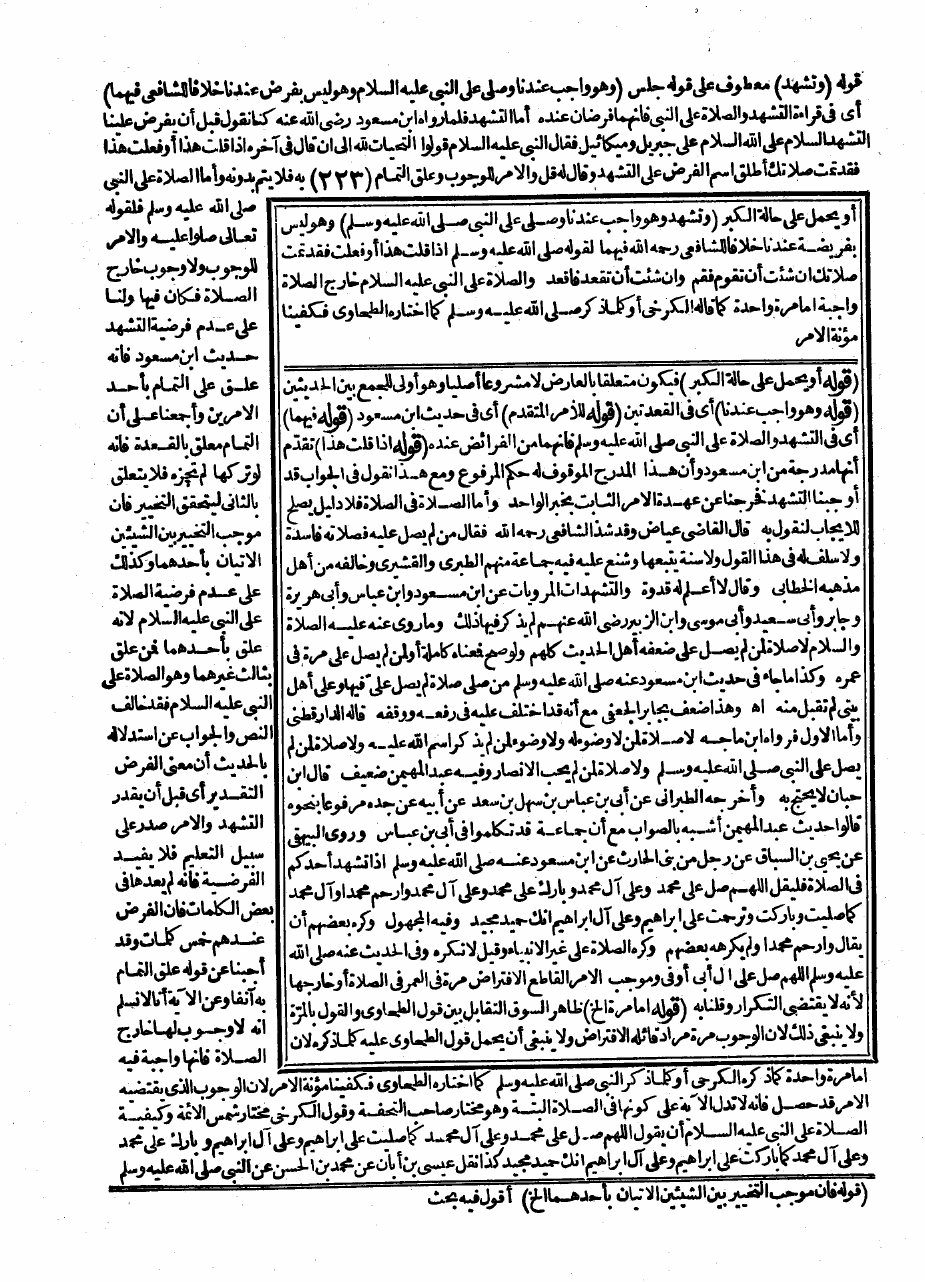 قوله (وتشهد) معطوف على قوله جلس (وهو واجب عندنا وصلى على النبي عليه السلام وهو ليس بفرض عندنا خلافا للشافعى فيهما)
أى فى قراءة التشهد والصلاة على النبي فانهما فرضان عنده أما التشهد فلما رواه ابن مسعود رضى الله عنه كنا نقول قبل أن يفرض علينا
التشهد السلام على الله السلام على جبريل وميكائيل فقال النبي عليه السلام قولوا التحيات لله الى ان قال فى آخره اذا قلت هذا أو فعلت هذا
فقد تمت صلاتك أطلق اسم الفرض على التشهد وقال له قل والامر للوجوب وعلق التمام (٢٢٣) به فلا يتم بدونه وأما الصلاة على النبي
صلى الله عليه وسلم فلقوله
تعالى صلوا عليه والامر
للوجوب ولا وجوب خارج
الصلاة فكان فيها ولنا
على عدم فرضية التشهد
حديث ابن مسعود فانه
علق على التمام بأحد
الامرين وأجمعنا على أن
التمام معلق بالقعدة فانه
لو تركها لم تجزه فلا يتعلق
بالثانى ليتحقق التخيير فان
موجب التخيير بين الشيئين
الاتيان بأحدهما وكذلك
على عدم فرضية الصلاة
على النبي عليه السلام لانه
علق بأحدهما فمن علق
بثالث غيرهما وهو الصلاة على
النبي عليه السلام فقد خالف
النص والجواب عن استدلاله
بالحديث أن معنى الفرض
التقدير أى قبل أن يقدر
التشهد والامر صدر على
سبيل التعليم فلا يفيد
الفرضية فانه لم يعدها فى
بعض الكلمات فان الفرض
عندهم خمس كلمات وقد
أجبنا عن قوله علق التمام
به آنفا وعن الآية أنا لا نسلم
انه لا وجوب لها خارج
الصلاة فانها واجبة فيه
أو يحمل على حالة الكبر (وتشهد وهو واجب عندنا وصلى على النبي صلى الله عليه وسلم) وهو ليس
بفريضة عندنا خلافا للشافعى رحمه الله فيهما لقوله صلى الله عليه وسلم اذا قلت هذا أو فعلت فقد تمت
صلاتك ان شئت أن تقوم فقم وان شئت أن تقعد فاقعد والصلاة على النبي عليه السلام خارج الصلاة
واجبة اما مرة واحدة كما قاله الكرخى أو كلما ذكر صلى الله عليه وسلم كما اختاره الطحاوى فكفينا
مؤنة الامر
(قوله أو يحمل على حالة الكبر) فيكون متعلقا بالعارض لا مشروعا أصليا وهو أولى للجمع بين الحديثين
(قوله وهو واجب عندنا) أى فى القعدتين (قوله للأمر المتقدم) أى فى حديث ابن مسعود (قوله فيهما)
أى فى التشهد والصلاة على النبي صلى الله عليه وسلم فانهما من الفرائض عنده (قوله اذا قلت هذا) تقدم
أنها مدرجة من ابن مسعود وأن هذا المدرج الموقوف له حكم المرفوع ومع هذا نقول فى الجواب قد
أوجبنا التشهد فخرجنا عن عهدة الامر الثابت بخبر الواحد وأما الصلاة فى الصلاة فلا دليل يصلح
للايجاب لنقول به قال القاضى عياض وقد شذ الشافعى رحمه الله فقال من لم يصل عليه فصلاته فاسدة
ولا سلف له فى هذا القول ولا سنة يتبعها وشنع عليه فيه جماعة منهم الطبرى والقشيرى وخالفه من أهل
مذهبه الخطابى وقال لا أعلم له قدوة والتشهدات المرويات عن ابن مسعود وابن عباس وأبى هريرة
وجابر وأبى سعيد وأبى موسى وابن الزبير رضى الله عنهم لم يذكر فيها ذلك وما روى عنه عليه الصلاة
والسلام لا صلاة لمن لم يصل على ضعفه أهل الحديث كلهم ولو صح فمعناه كاملة أو لمن لم يصل على مرة فى
عمره وكذا ما جاء فى حديث ابن مسعود عنه صلى الله عليه وسلم من صلى صلاة لم يصل على فيها وعلى أهل
بيتى لم تقبل منه اه وهذا ضعف بجابر الجعفى مع أنه قد اختلف عليه فى رفعه ووقفه قاله الدارقطنى
وأما الاول فرواه ابن ماجه لا صلاة لمن لا وضوء له ولا وضوء لمن لم يذكر اسم الله عليه ولا صلاة لمن لم
يصل على النبي صلى الله عليه وسلم ولا صلاة لمن لم يحب الانصار وفيه عبد المهيمن ضعيف قال ابن
حبان لا يحتج به وأخرجه الطبرانى عن أبى بن عباس بن سهل بن سعد عن أبيه عن جده مرفوعا بنحوه
قالوا حديث عبد المهيمن أشبه بالصواب مع أن جماعة قد تكلموا فى أبى بن عباس وروى البيهقى
عن يحيى بن السباق عن رجل من بنى الحارث عن ابن مسعود عنه صلى الله عليه وسلم اذا تشهد أحدكم
فى الصلاة فليقل اللهم صل على محمد وعلى آل محمد وبارك على محمد وعلى آل محمد وارحم محمدا وآل محمد
كما صليت وباركت وترحمت على ابراهيم وعلى آل ابراهيم انك حميد مجيد وفيه المجهول وكره بعضهم أن
يقال وارحم محمدا ولم يكرهه بعضهم وكره الصلاة على غير الانبياء وقيل لا تكره وفى الحديث عنه صلى الله
عليه وسلم اللهم صل على ال أبى أوفى وموجب الامر القاطع الافتراض مرة فى العمر فى الصلاة أو خارجها
لأنه لا يقتضى التكرار وقلنا به (قوله اما مرة الخ) ظاهر السوق التقابل بين قول الطحاوى والقول بالمرة
ولا ينبغى ذلك لان الوجوب مرة مراد قائله الافتراض ولا ينبغى أن يحمل قول الطحاوى عليه كلما ذكره لان
اما مرة واحدة كما ذكره الكرخى أو كلما ذكر النبي صلى الله عليه وسلم كما اختاره الطحاوى فكفينا مؤنة الامر لان الوجوب الذى يقتضيه
الامر قد حصل فانه لا تدل الآية على كونها فى الصلاة البتة وهو مختار صاحب التحفة وقول الكرخى مختار شمس الائمة وكيفية
الصلاة على النبي عليه السلام أن يقول اللهم صل على محمد وعلى آل محمد كما صليت على ابراهيم وعلى آل ابراهيم وبارك على محمد
وعلى آل محمد كما باركت على ابراهيم وعلى آل ابراهيم انك حميد مجيد كذا نقل عيسى بن أبان عن محمد بن الحسن عن النبي صلى الله عليه وسلم
(قوله فان موجب التخيير بين الشيئين الاتيان بأحدهما الخ) أقول فيه بحث